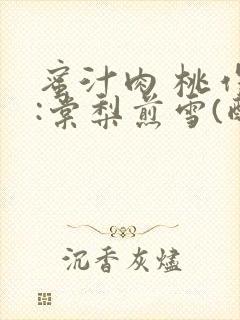 蜜汁肉桃作
:棠梨煎雪(
沉香灰燼